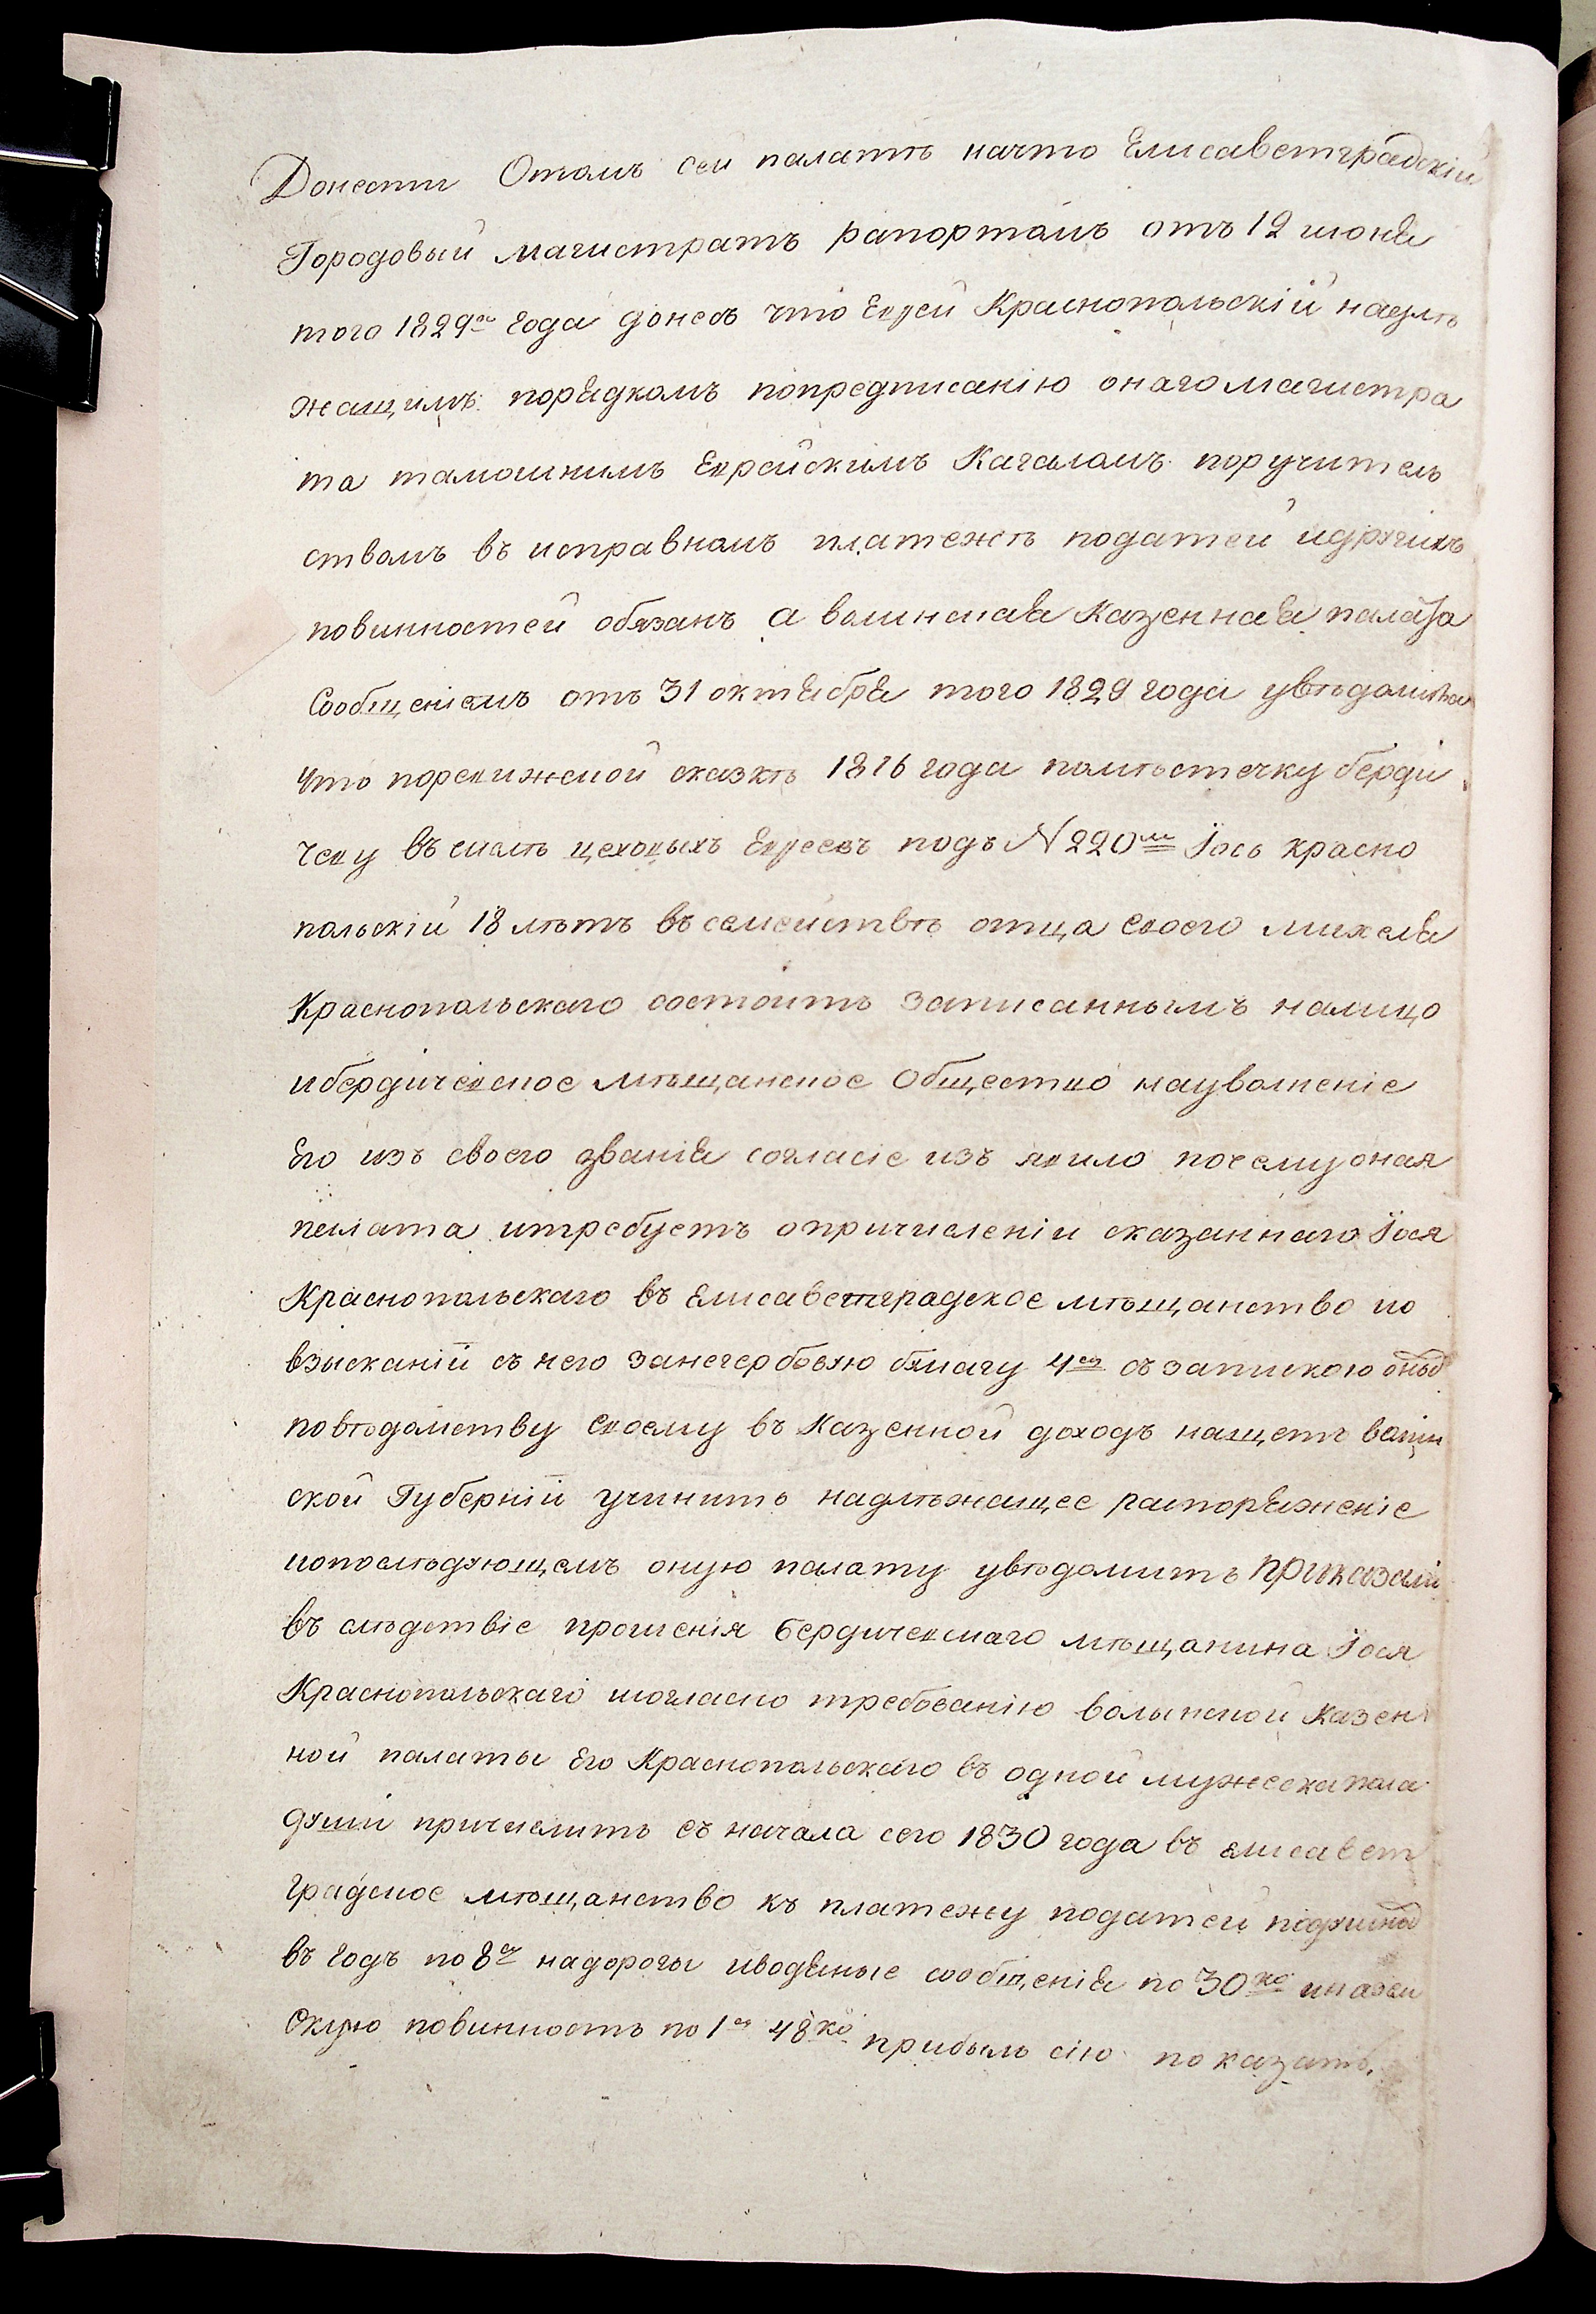 Донести Отомъ сей палатѣ начто Елисаветградскій
Городовый магистратъ рапортомъ отъ 12 июня
того 1829го года донесъ что Еврей Краснопольскій надлѣ
жащимъ порядкомъ попредписанію онаго магистра
та тамошнимъ Еврейскимъ Кагаломъ поручитель
ствомъ въ исправномъ платежѣ податей идругихъ
повинностей обязанъ а волинская Казенная палата
Сообщеніемъ отъ 31 октября того 1829 года увѣдомила
Что поревижской сказкѣ 1816 года помѣстечку берди
чеву въ числѣ цеховыхъ Евреевъ подъ N 220м Іось красно
польскій 18 лѣтъ въ семействѣ отца своего михеля
Краснопольскаго состоитъ записаннымъ налицо
ибердичевское мѣщанское Общество науволненіе
Его изъ своего званія согласіе изъ явило почему оная
палата итребуетъ опричисленіи сказаннаго Іося
Краснопольскаго въ Елисаветградское мѣщанство ио
взысканіи съ него занегербовую бумагу 4ре съ запискою оныхъ
повѣдомству своему въ Казенной доходъ нащетъ волин
ской Губерніи учинить надлѣжащее распоряженіе
ипослѣдующемъ оную палату увѣдомить приказали
въ слѣдствіе прошенія бердичевскаго мѣщанина Іося
Краснопольскаго исогласно требованію волынской Казен
ной палаты Его Краснопольскаго въ одной мужеска пола
души причислить съ начала сего 1830 года въ елисавет
градское мѣщанство къ платежу податей подушныхъ
въ годъ по 8р надороги иводяные сообщенія по 30ко иназем
скую повинность по 1р 48ко прибыль сію показать.